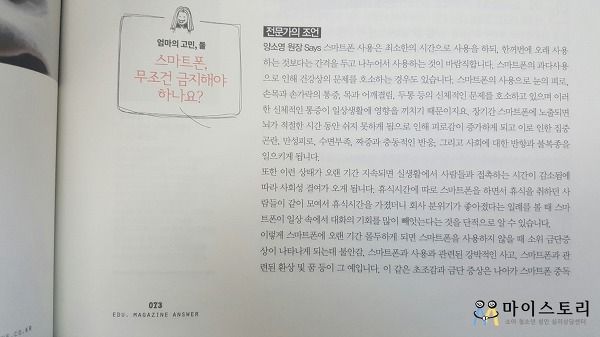 엄마의 고민, 둘
스마트폰,
무조건 금지해야
하나요?
전문가의 조언
양소영 원장 Says 스마트폰 사용은 최소한의 시간으로 사용을 하되, 한꺼번에 오래 사용
하는 것보다는 간격을 두고 나누어서 사용하는 것이 바람직합니다. 스마트폰의 과다사용
으로 인해 건강상의 문제를 호소하는 경우도 있습니다. 스마트폰의 사용으로 눈의 피로,
손목과 손가락의 통증, 목과 어깨결림, 두통 등의 신체적인 문제를 호소하고 있으며 이러
한 신체적인 통증이 일상생활에 영향을 끼치기 때문이지요. 장기간 스마트폰에 노출되면
뇌가 적절한 시간 동안 쉬지 못하게 됨으로 인해 피로감이 증가하게 되고 이로 인한 집중
곤란, 만성피로, 수면부족, 짜증과 충동적인 반응, 그리고 사회에 대한 반항과 불복종을
일으키게 됩니다.
또한 이런 상태가 오랜 기간 지속되면 실생활에서 사람들과 접촉하는 시간이 감소됨에
따라 사회성 결여가 오게 됩니다. 휴식시간에 따로 스마트폰을 하면서 휴식을 취하던 사
람들이 같이 모여서 휴식시간을 가졌더니 회사 분위기가 좋아졌다는 일례를 볼 때 스마
트폰이 일상 속에서 대화의 기회를 많이 빼앗는다는 것을 단적으로 알 수 있습니다.
이렇게 스마트폰에 오랜 기간 몰두하게 되면 스마트폰을 사용하지 않을 때 소위 금단증
상이 나타나게 되는데 불안감, 스마트폰과 사용과 관련된 강박적인 사고, 스마트폰과 관
련된 환상 및 꿈 등이 그 예입니다. 이 같은 초조감과 금단 증상은 나아가 스마트폰 중독
073
EDU. MAGAZINE ANSWER
마이스토리
소아 청소년 성인 심리상담센터